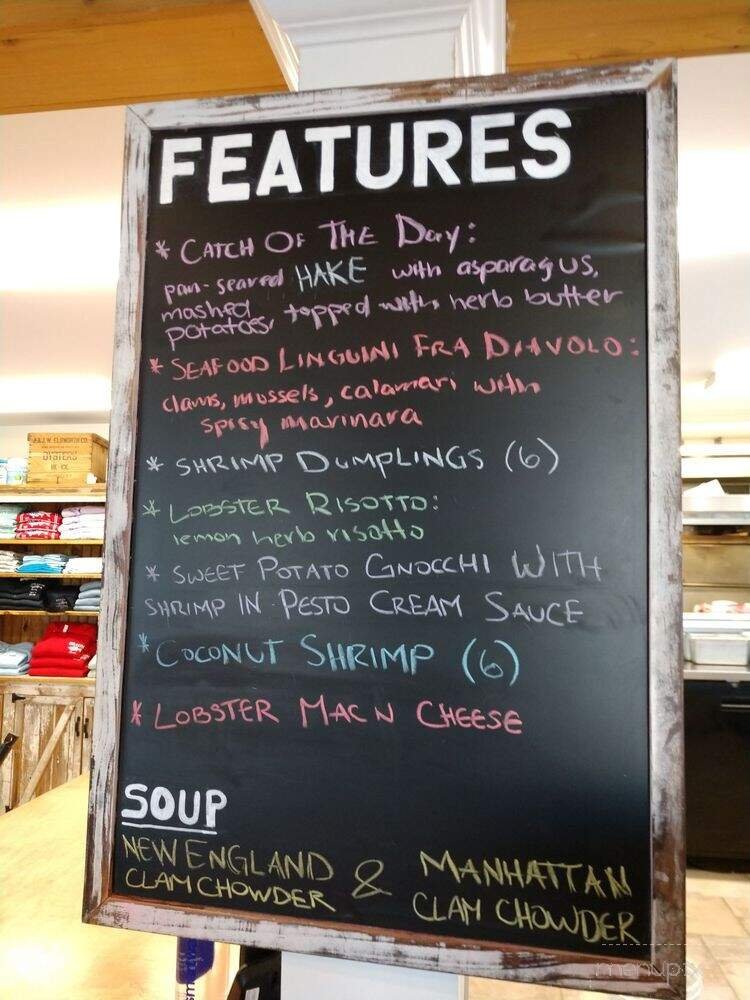 FEATURES
* CATCH OF THE DAY:
pan-seared HAKE with asparagus,
mashed
potatoes, topped with herb butter
* SEAFOOD LINGUINI FRA DIAVOLO:
clams, mussels, calamari with
spicy marinara
* SHRIMP DUMPLINGS (6)
* LOBSTER RISOTTO:
lemon herb risotto
* SWEET POTATO GNOCCHI WITH
SHRIMP IN PESTO CREAM SAUCE
* COCONUT SHRIMP (6)
* LOBSTER MAC N CHEESE
SOUP
NEW ENGLAND
CLAM CHOWDER
&
MANHATTAN
CLAM CHOWDER
OYSTERS
menupix